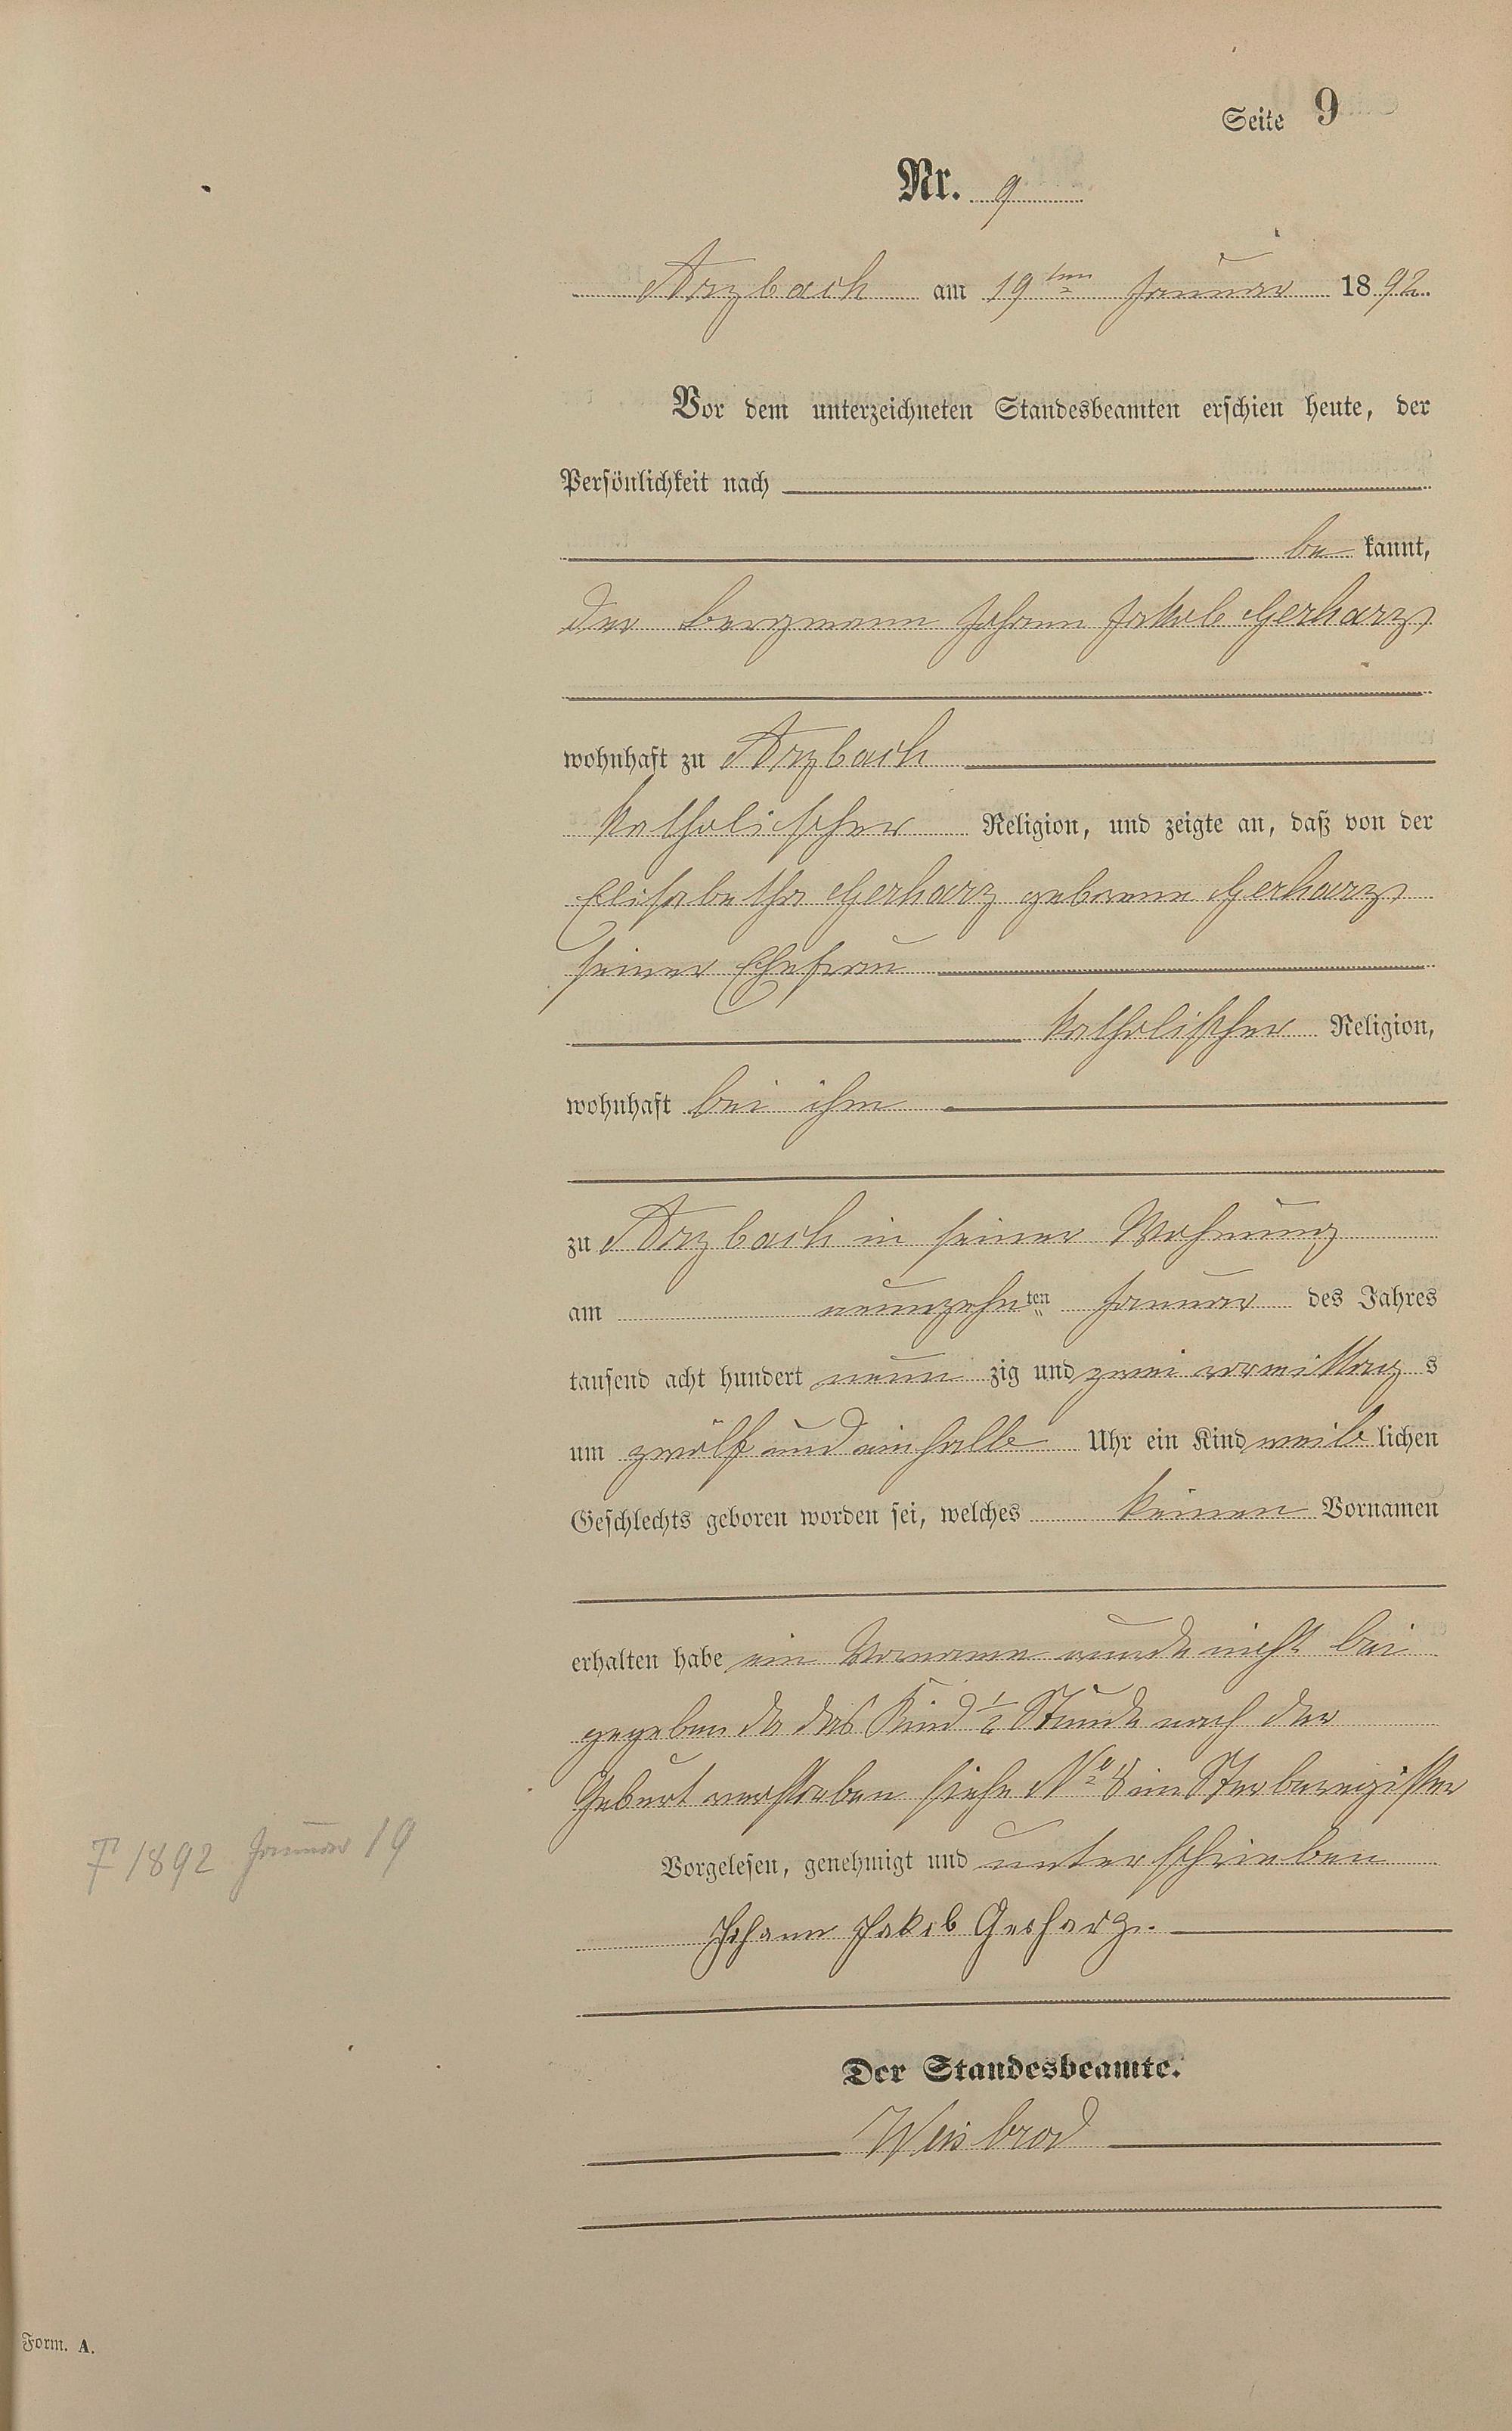 Seite 9
Nr. 9
Arzbach am 19ten Januar 1892.
Vor dem unterzeichneten Standesbeamten erschien heute, der
Persönlichkeit nach
be kannt,
der Bergmann Johann Jakob Gerharz
wohnhaft zu Arzbach
katholischer Religion, und zeigte an, daß von der
Elisabetha Gerharz geborene Gerharz
seiner Ehefrau
katholischer Religion,
wohnhaft bei ihm
zu Arzbach in seiner Wohnung
am neunzehnten Januar des Jahres
tausend acht hundert neun zig und zwei vormittag s
um zwölf und ein halb Uhr ein Kind weib lichen
Geschlechts geboren worden sei, welches keinen Vornamen
erhalten habe ein Vorname wurde nicht bei
gegeben da das Kind ½ Stunde nach der
Geburt verstorben siehe No 8 im Sterberegister
Vorgelesen, genehmigt und unterschrieben
Johann Jakob Gerharz.
Der Standesbeamte.
Weisbrod
† 1892 Januar 19
Form. A.